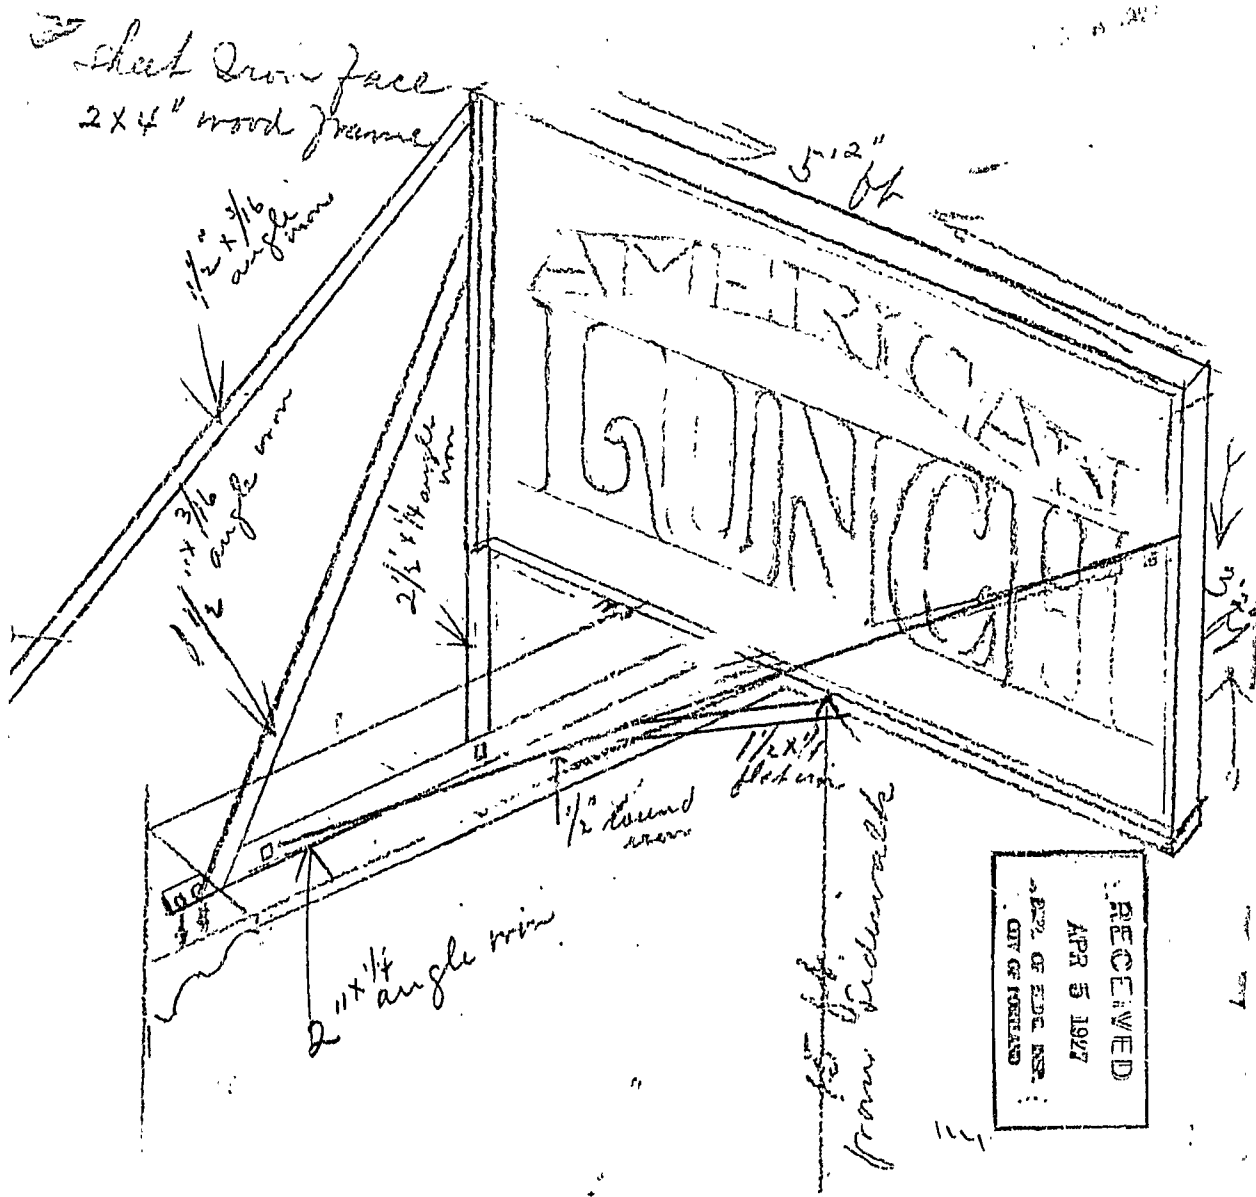 sheet Iron face
2 x 4" wood frame
1 1/2" x 3/16
angle iron
1 1/2" x 3/16
angle iron
2 1/2" x 1/4 angle
iron
AMERICAN
LUNCH
1 1/2 x 1/4
flat iron
1/2" round
iron
2" x 1/4
angle iron
from sidewalk
RECEIVED
APR 5 1927
DEPT. OF BLDG. INSP.
CITY OF PORTLAND